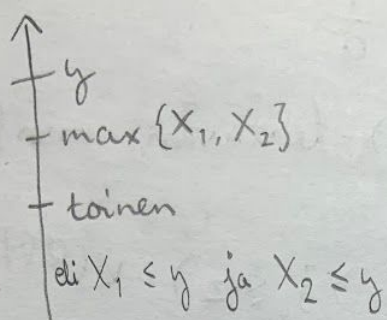 y
max {X₁, X₂}
toinen
eli X₁ ≤ y ja X₂ ≤ y